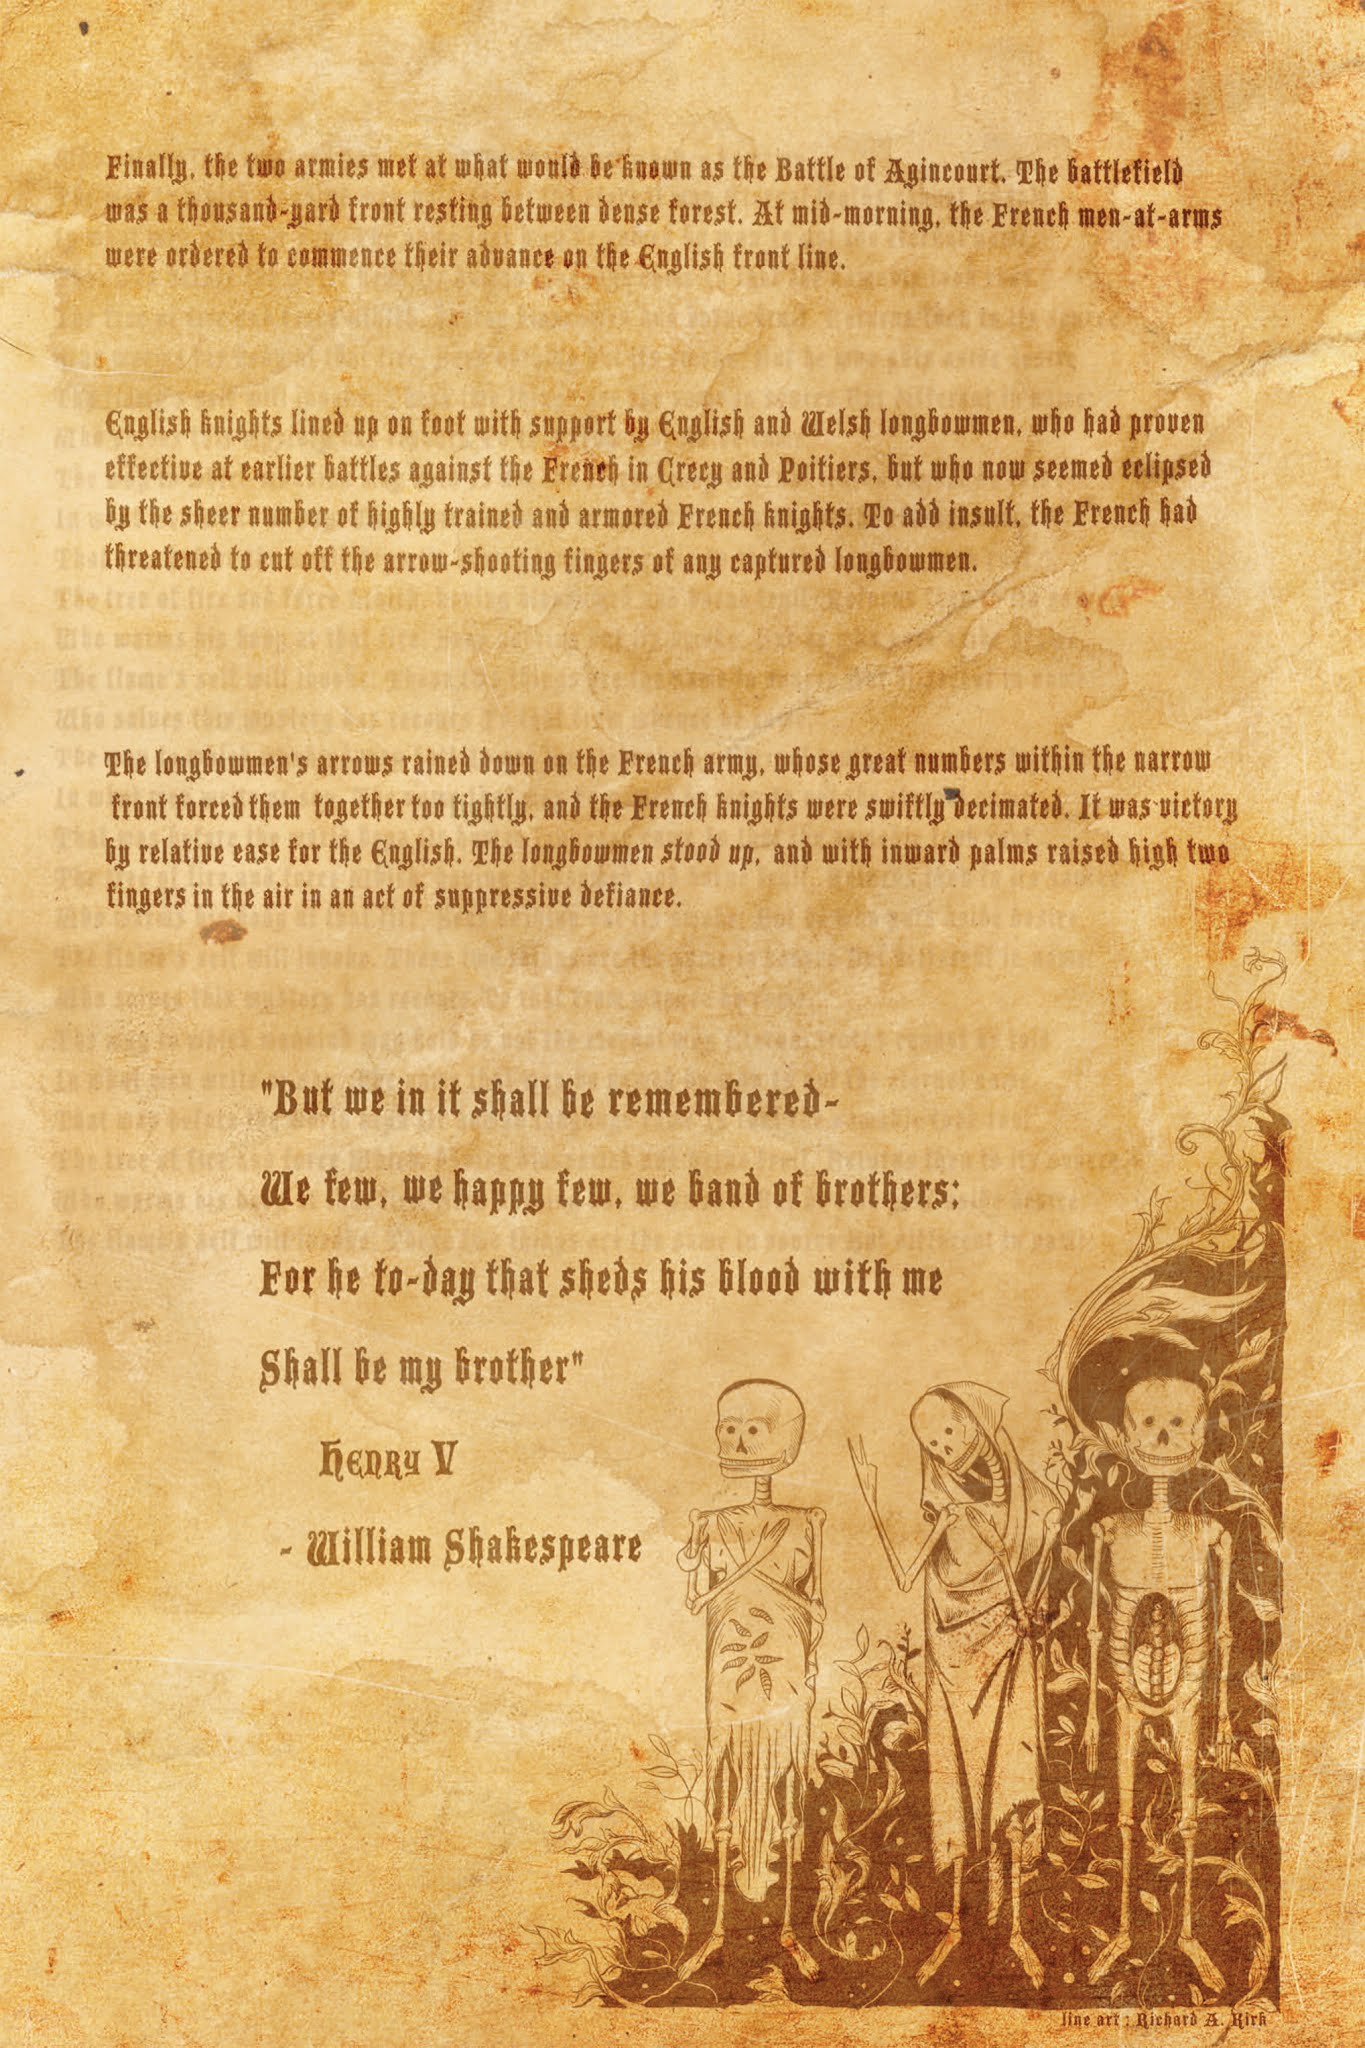 Finally, the two armies met at what would be known as the Battle of Agincourt. The battlefield
was a thousand-yard front resting between dense forest. At mid-morning, the French men-at-arms
were ordered to commence their advance on the English front line.
English knights lined up on foot with support by English and Welsh longbowmen, who had proven
effective at earlier battles against the French in Crecy and Poitiers, but who now seemed eclipsed
by the sheer number of highly trained and armored French knights. To add insult, the French had
threatened to cut off the arrow-shooting fingers of any captured longbowmen.
The longbowmen's arrows rained down on the French army, whose great numbers within the narrow
front forced them together too tightly, and the French knights were swiftly decimated. It was victory
by relative ease for the English. The longbowmen stood up, and with inward palms raised high two
fingers in the air in an act of suppressive defiance.
"But we in it shall be remembered-
We few, we happy few, we band of brothers;
For he to-day that sheds his blood with me
Shall be my brother"
Henry V
- William Shakespeare
line art : Richard A. Kirk